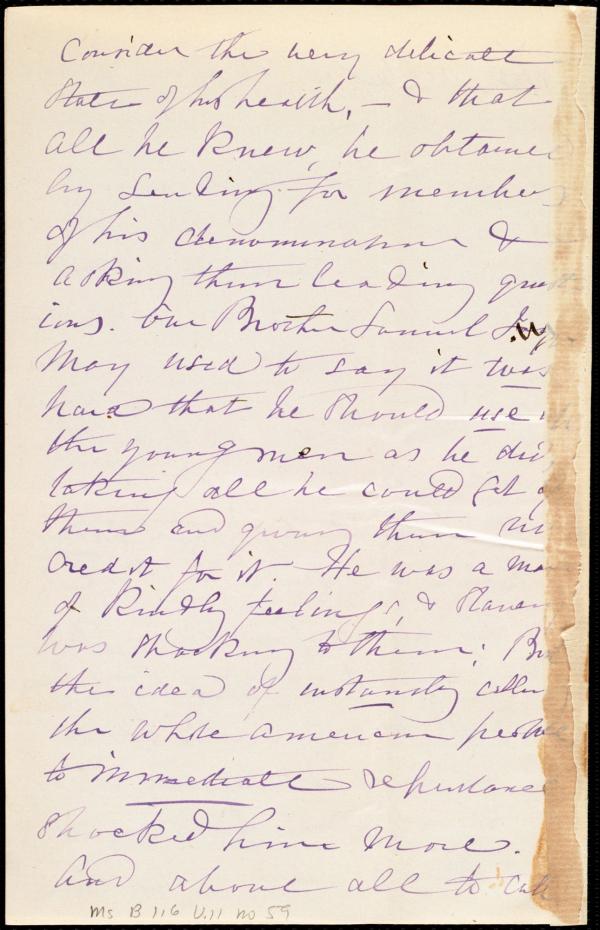 Consider the very delicate
state of his health, – & that
all he knew, he obtained
by sending for members
of his denomination &
asking them leading quest
ions. Our Brother Samuel
May used to say it was
hard that he should use
the young men as he did
taking all he could get of
them and giving them no
credit for it. He was a man
of kindly feelings, & slavery
was shocking to them; But
the idea of instantly
the whole American people
to immediate repentance
shocked him more.
And above all to call
Ms B 1.6 V.11 no 59